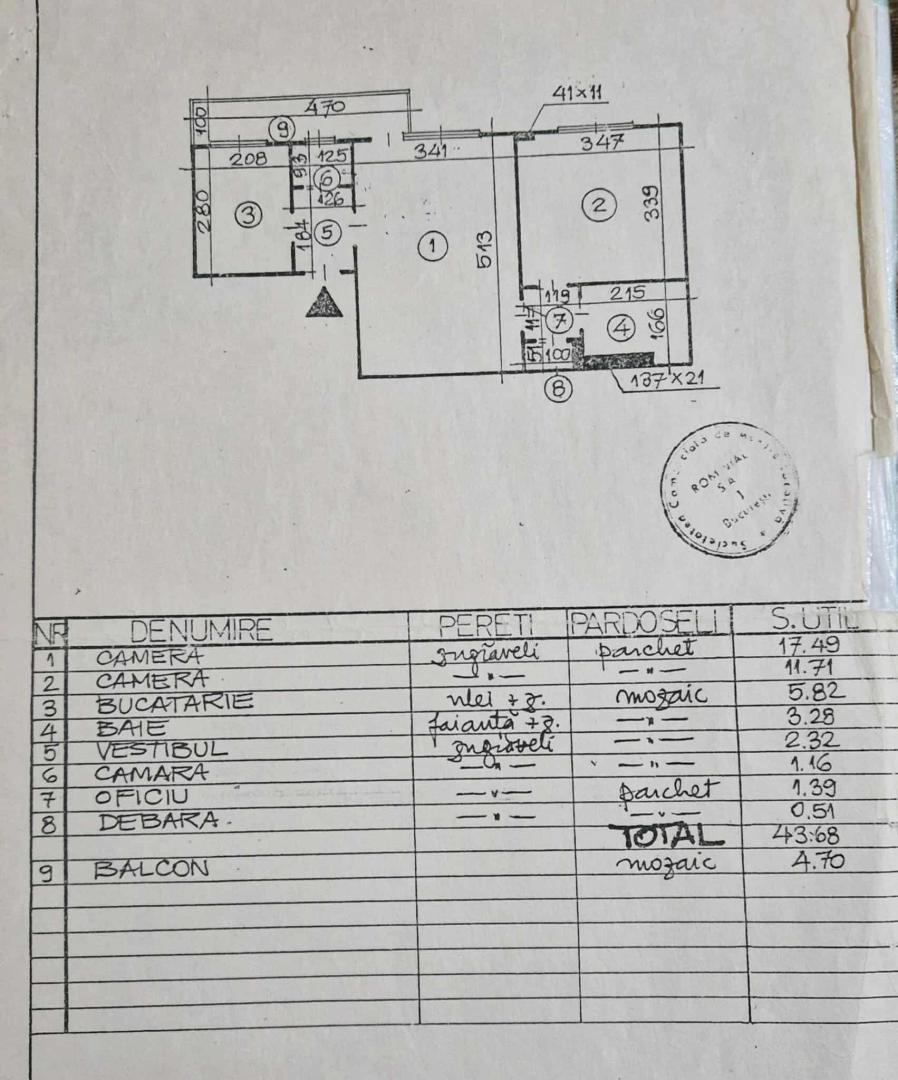 41×11
470
100
9
208
93
125
341
347
6
126
280
3
184
5
1
513
2
339
119
215
117
7
4
166
51
100
8
137×21
Societatea Comerciala de
ROM VIAL
SA
București
NR DENUMIRE PEREȚI PARDOSELI S. UTIL
1 CAMERA zugrăveli parchet 17.49
2 CAMERA —〃— —〃— 11.71
3 BUCATARIE ulei + z. mozaic 5.82
4 BAIE faianță + z. —〃— 3.28
5 VESTIBUL zugrăveli —〃— 2.32
6 CAMARA —〃— —〃— 1.16
7 OFICIU —〃— parchet 1.39
8 DEBARA. —〃— —〃— 0.51
TOTAL 43.68
9 BALCON mozaic 4.70